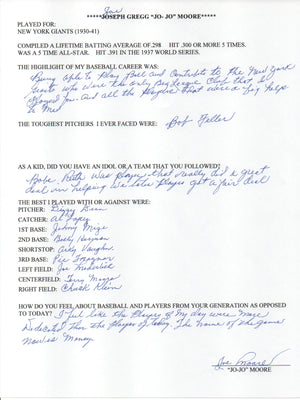 Joe
*****JOSEPH GREGG "JO-JO" MOORE*****
PLAYED FOR:
NEW YORK GIANTS (1930-41)
COMPILED A LIFETIME BATTING AVERAGE OF .298 HIT .300 OR MORE 5 TIMES.
WAS A 5 TIME ALL-STAR. HIT .391 IN THE 1937 WORLD SERIES.
THE HIGHLIGHT OF MY BASEBALL CAREER WAS:
Being able to Play Ball and Contribute to the New York
Giants who were the only Big League Club that I
Played for. And all the Players that were a big help
to Me.
THE TOUGHEST PITCHERS I EVER FACED WERE: Bob Feller
AS A KID, DID YOU HAVE AN IDOL OR A TEAM THAT YOU FOLLOWED?
Babe Ruth was Player that really did a great
deal in helping we other Player get a fair deal
THE BEST I PLAYED WITH OR AGAINST WERE:
PITCHER: Dizzy Dean
CATCHER: Al Lopez
1ST BASE: Johnny Mize
2ND BASE: Billy Herman
SHORTSTOP: Arky Vaughn
3RD BASE: Pie Traynor
LEFT FIELD: Joe Medwick
CENTERFIELD: Terry Moore
RIGHT FIELD: Chuck Klein
HOW DO YOU FEEL ABOUT BASEBALL AND PLAYERS FROM YOUR GENERATION AS OPPOSED
TO TODAY? I feel like the Player of My day were More
Dedicated than the Player of today. The name of the game
now is Money.
Joe Moore
"JO-JO" MOORE